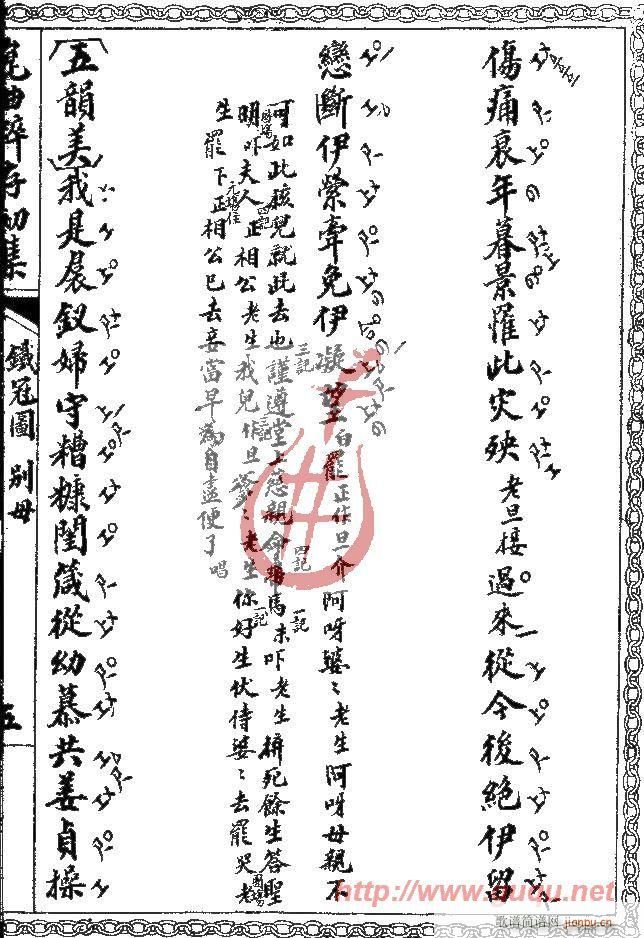 傷痛哀年暮景罹此災殃老旦接過來從今後絕伊留
戀斷伊縈牽免伊凝望白罷正作旦一介阿呀婆〻老生阿呀母親不
可如此孩兒就此去也謹遵堂上慈親命帶馬末吓老生拚死餘生答聖
明吓夫人正相公老生我兒作旦爹〻老生你好生伏侍婆〻去罷哭老
生罷下正相公已去妾當早為自盡便了唱
五韻美我是晨釵婦守糟糠閨箴從幼慕共姜貞操
鐵冠圖 別母
五
http://www.ququ.net
歌谱简谱网
jianpu.cn